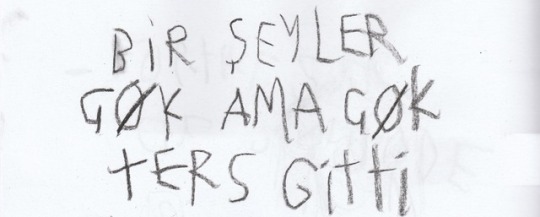 BİR ŞEYLER
GØK AMA GØK
TERS GİTTİ